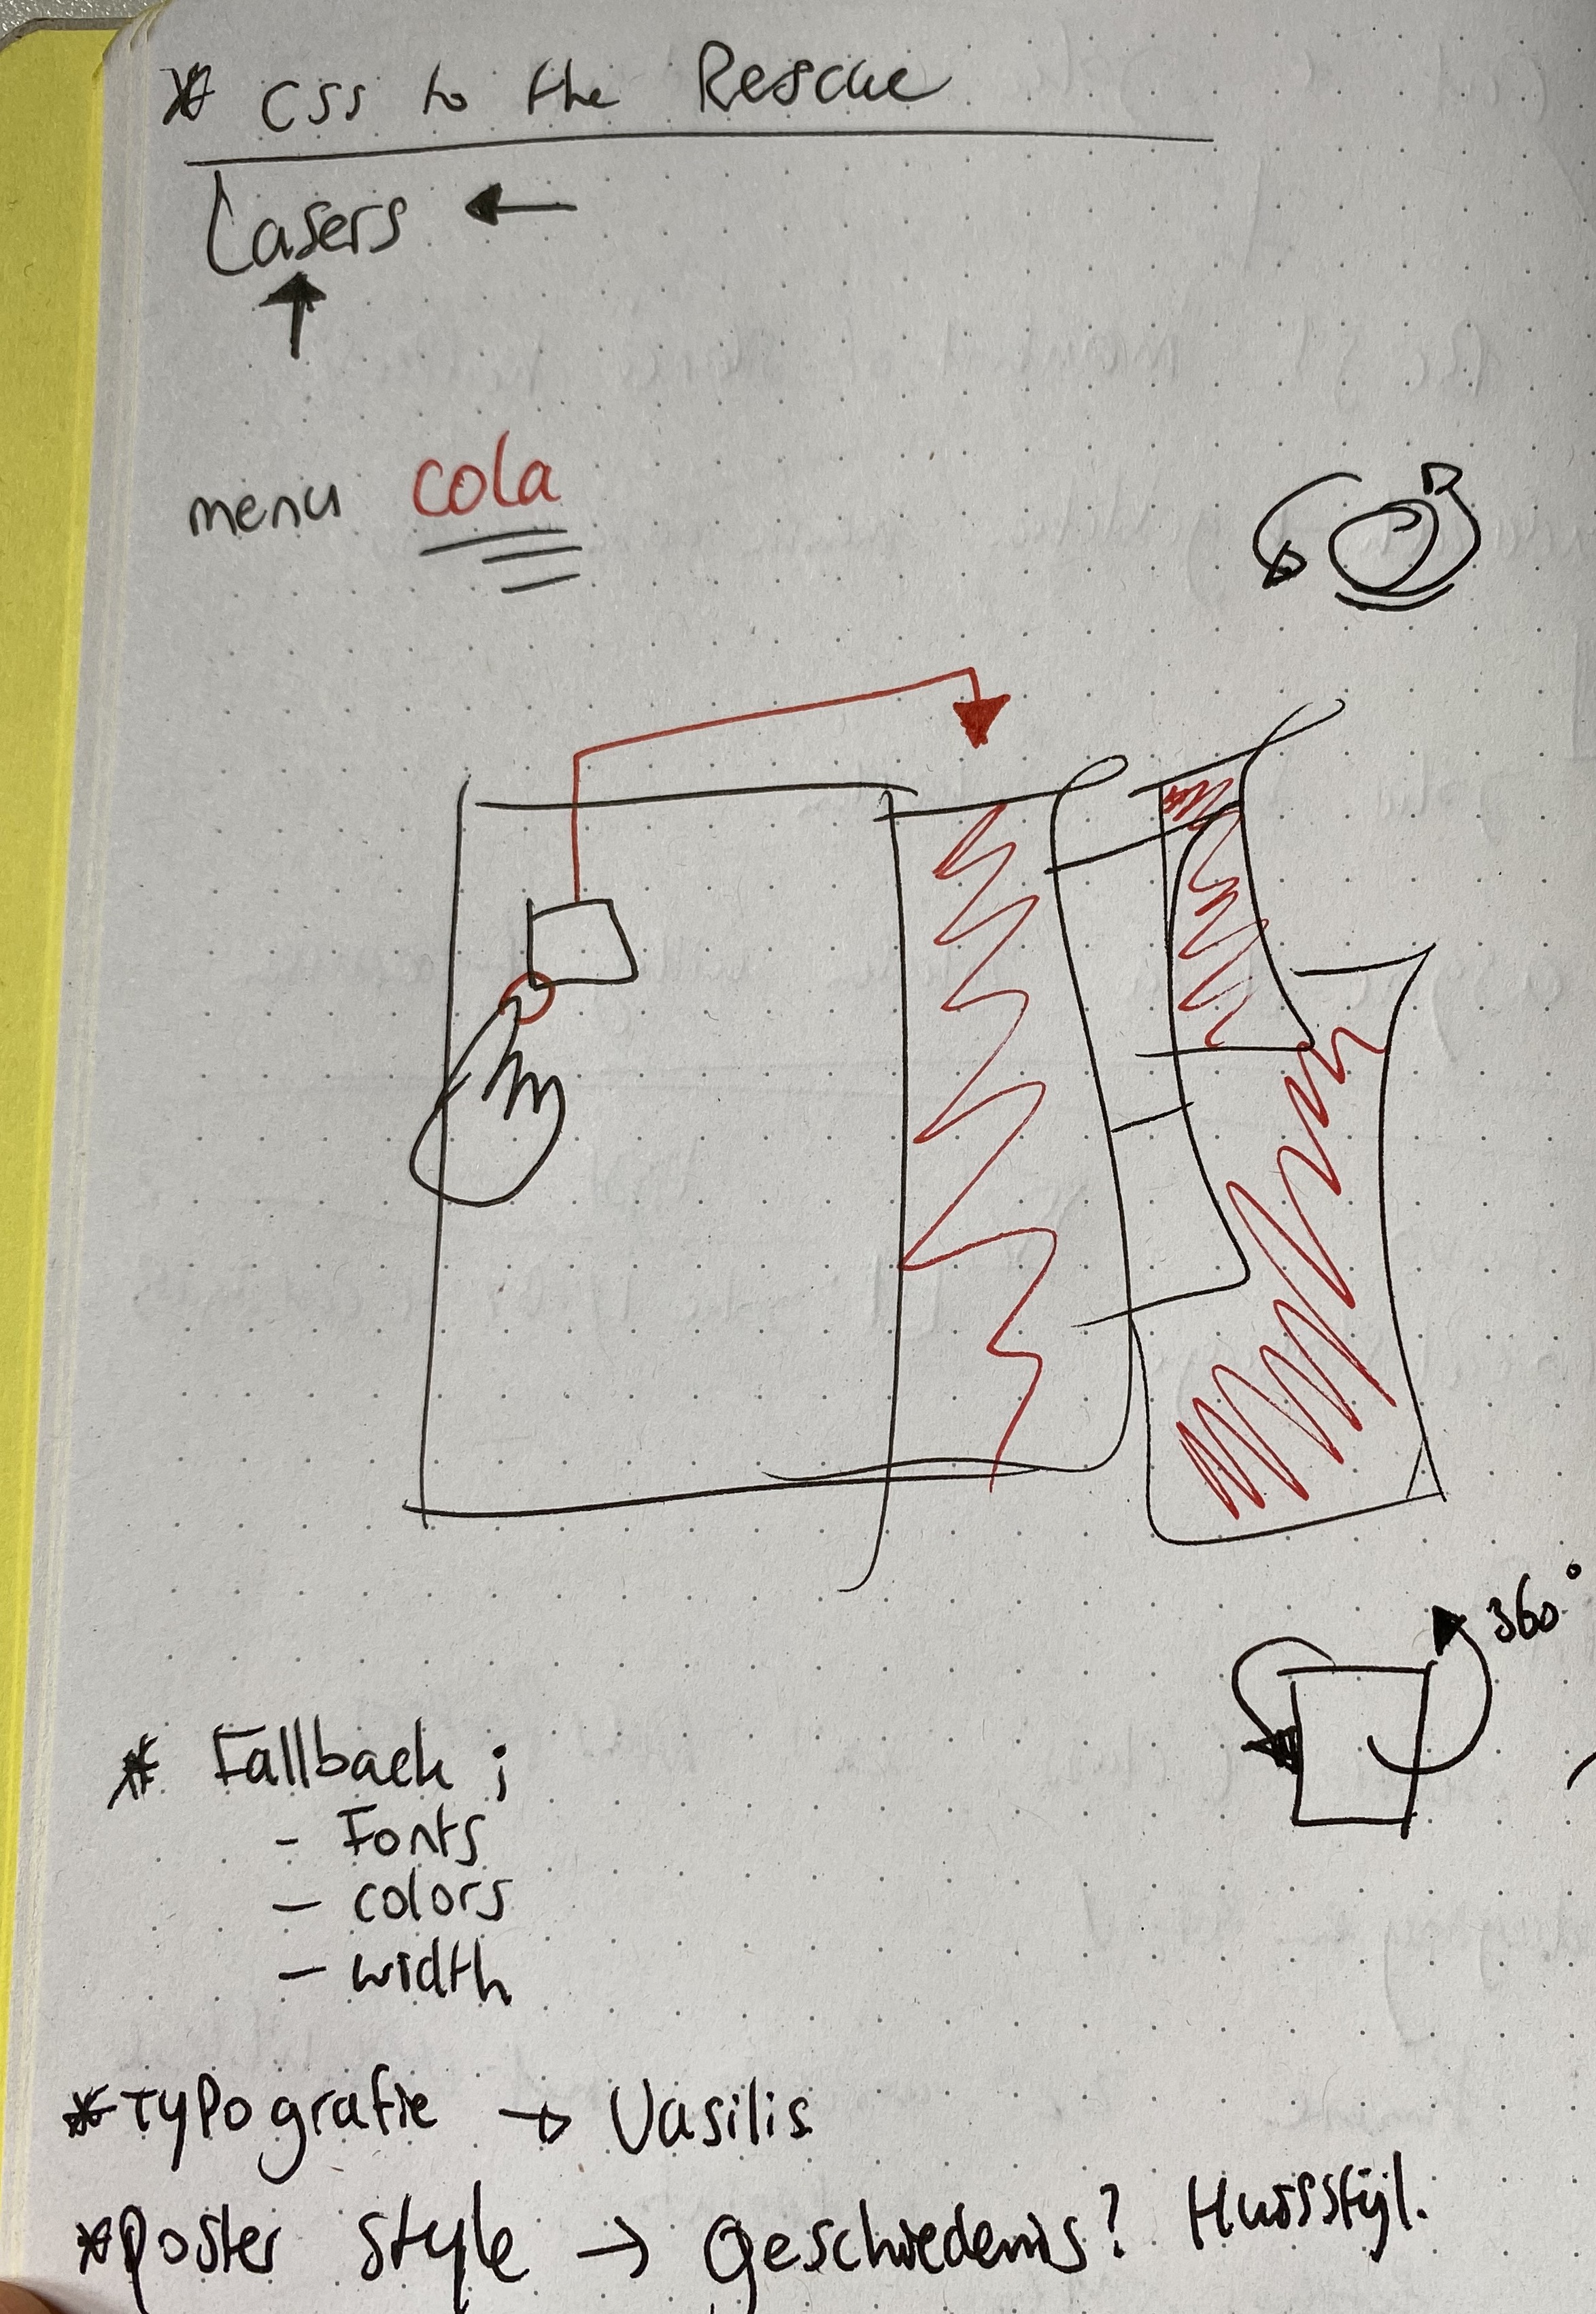 * CSS to the Rescue
Lasers ←
↑
menu cola
360°
* Fallback ;
- Fonts
- colors
- width
* Typografie → Vasilis
* Poster style → Geschiedenis? Huisstijl.